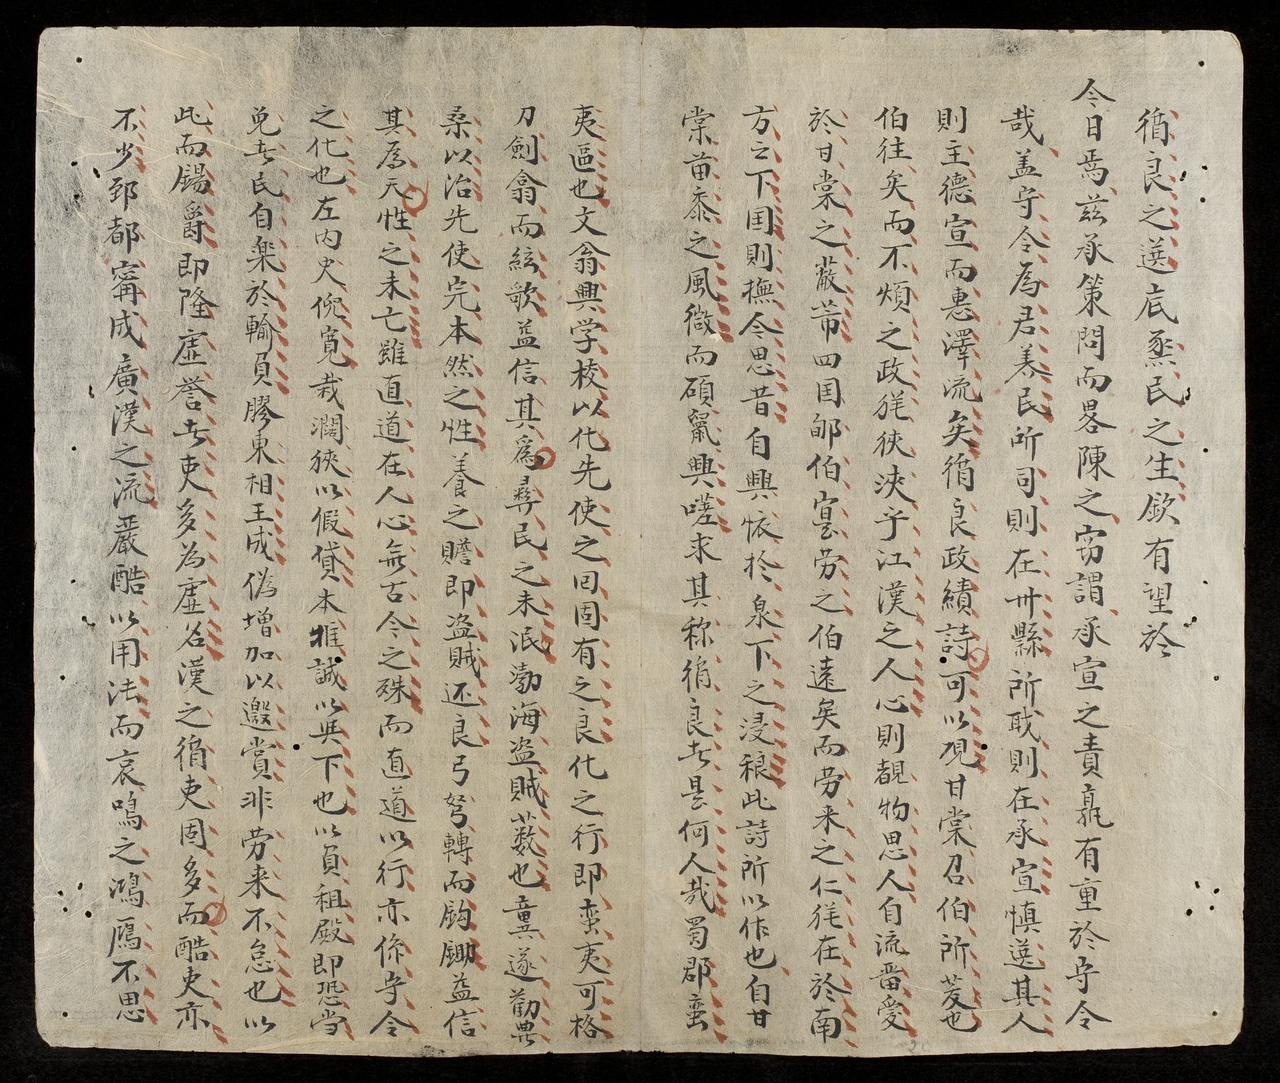 循良之選底烝民之生欽有望於
今日焉茲承策問而畧陳之窃謂承宣之責孰有重於守令
哉盖守令為君養民所司則在卅縣所職則在承宣慎選其人
則主德宣而惠澤流矣循良政績詩可以覌甘棠召伯所茇也
伯往矣而不煩之政徃狹浹乎江漢之人心則覩物思人自流畨愛
於甘棠之蔽芾四囯郇伯寔劳之伯遠矣而劳来之仁徃在於南
方之下囯則撫今思昔自興忾於泉下之浸稂此詩所以作也自甘
棠苗黍之風微而碩鼠興嗟求其称循良者是何人哉蜀郡蛮
夷區也文翁興学校以化先使之囘固有之良化之行即蛮夷可格
刀劍翕而絃歌益信其為彛民之未泯渤海盗賊薮也龔遂勸農
桑以治先使完本然之性養之贍即盗賊还良弓弩轉而鈎鋤益信
其為天性之未亡雖直道在人心無古今之殊而直道以行亦係守令
之化也左内史倪寛裁濶狹以假貸本推誠以與下也以負租殿即恐當
免者民自楽於輸負膠東相王成偽増加以邀賞非劳来不怠也以
此而錫爵即隆虚誉者吏多為虚名漢之循吏固多而酷吏亦
不少郅都甯成廣漢之流嚴酷以用法而哀鳴之鴻鴈不思